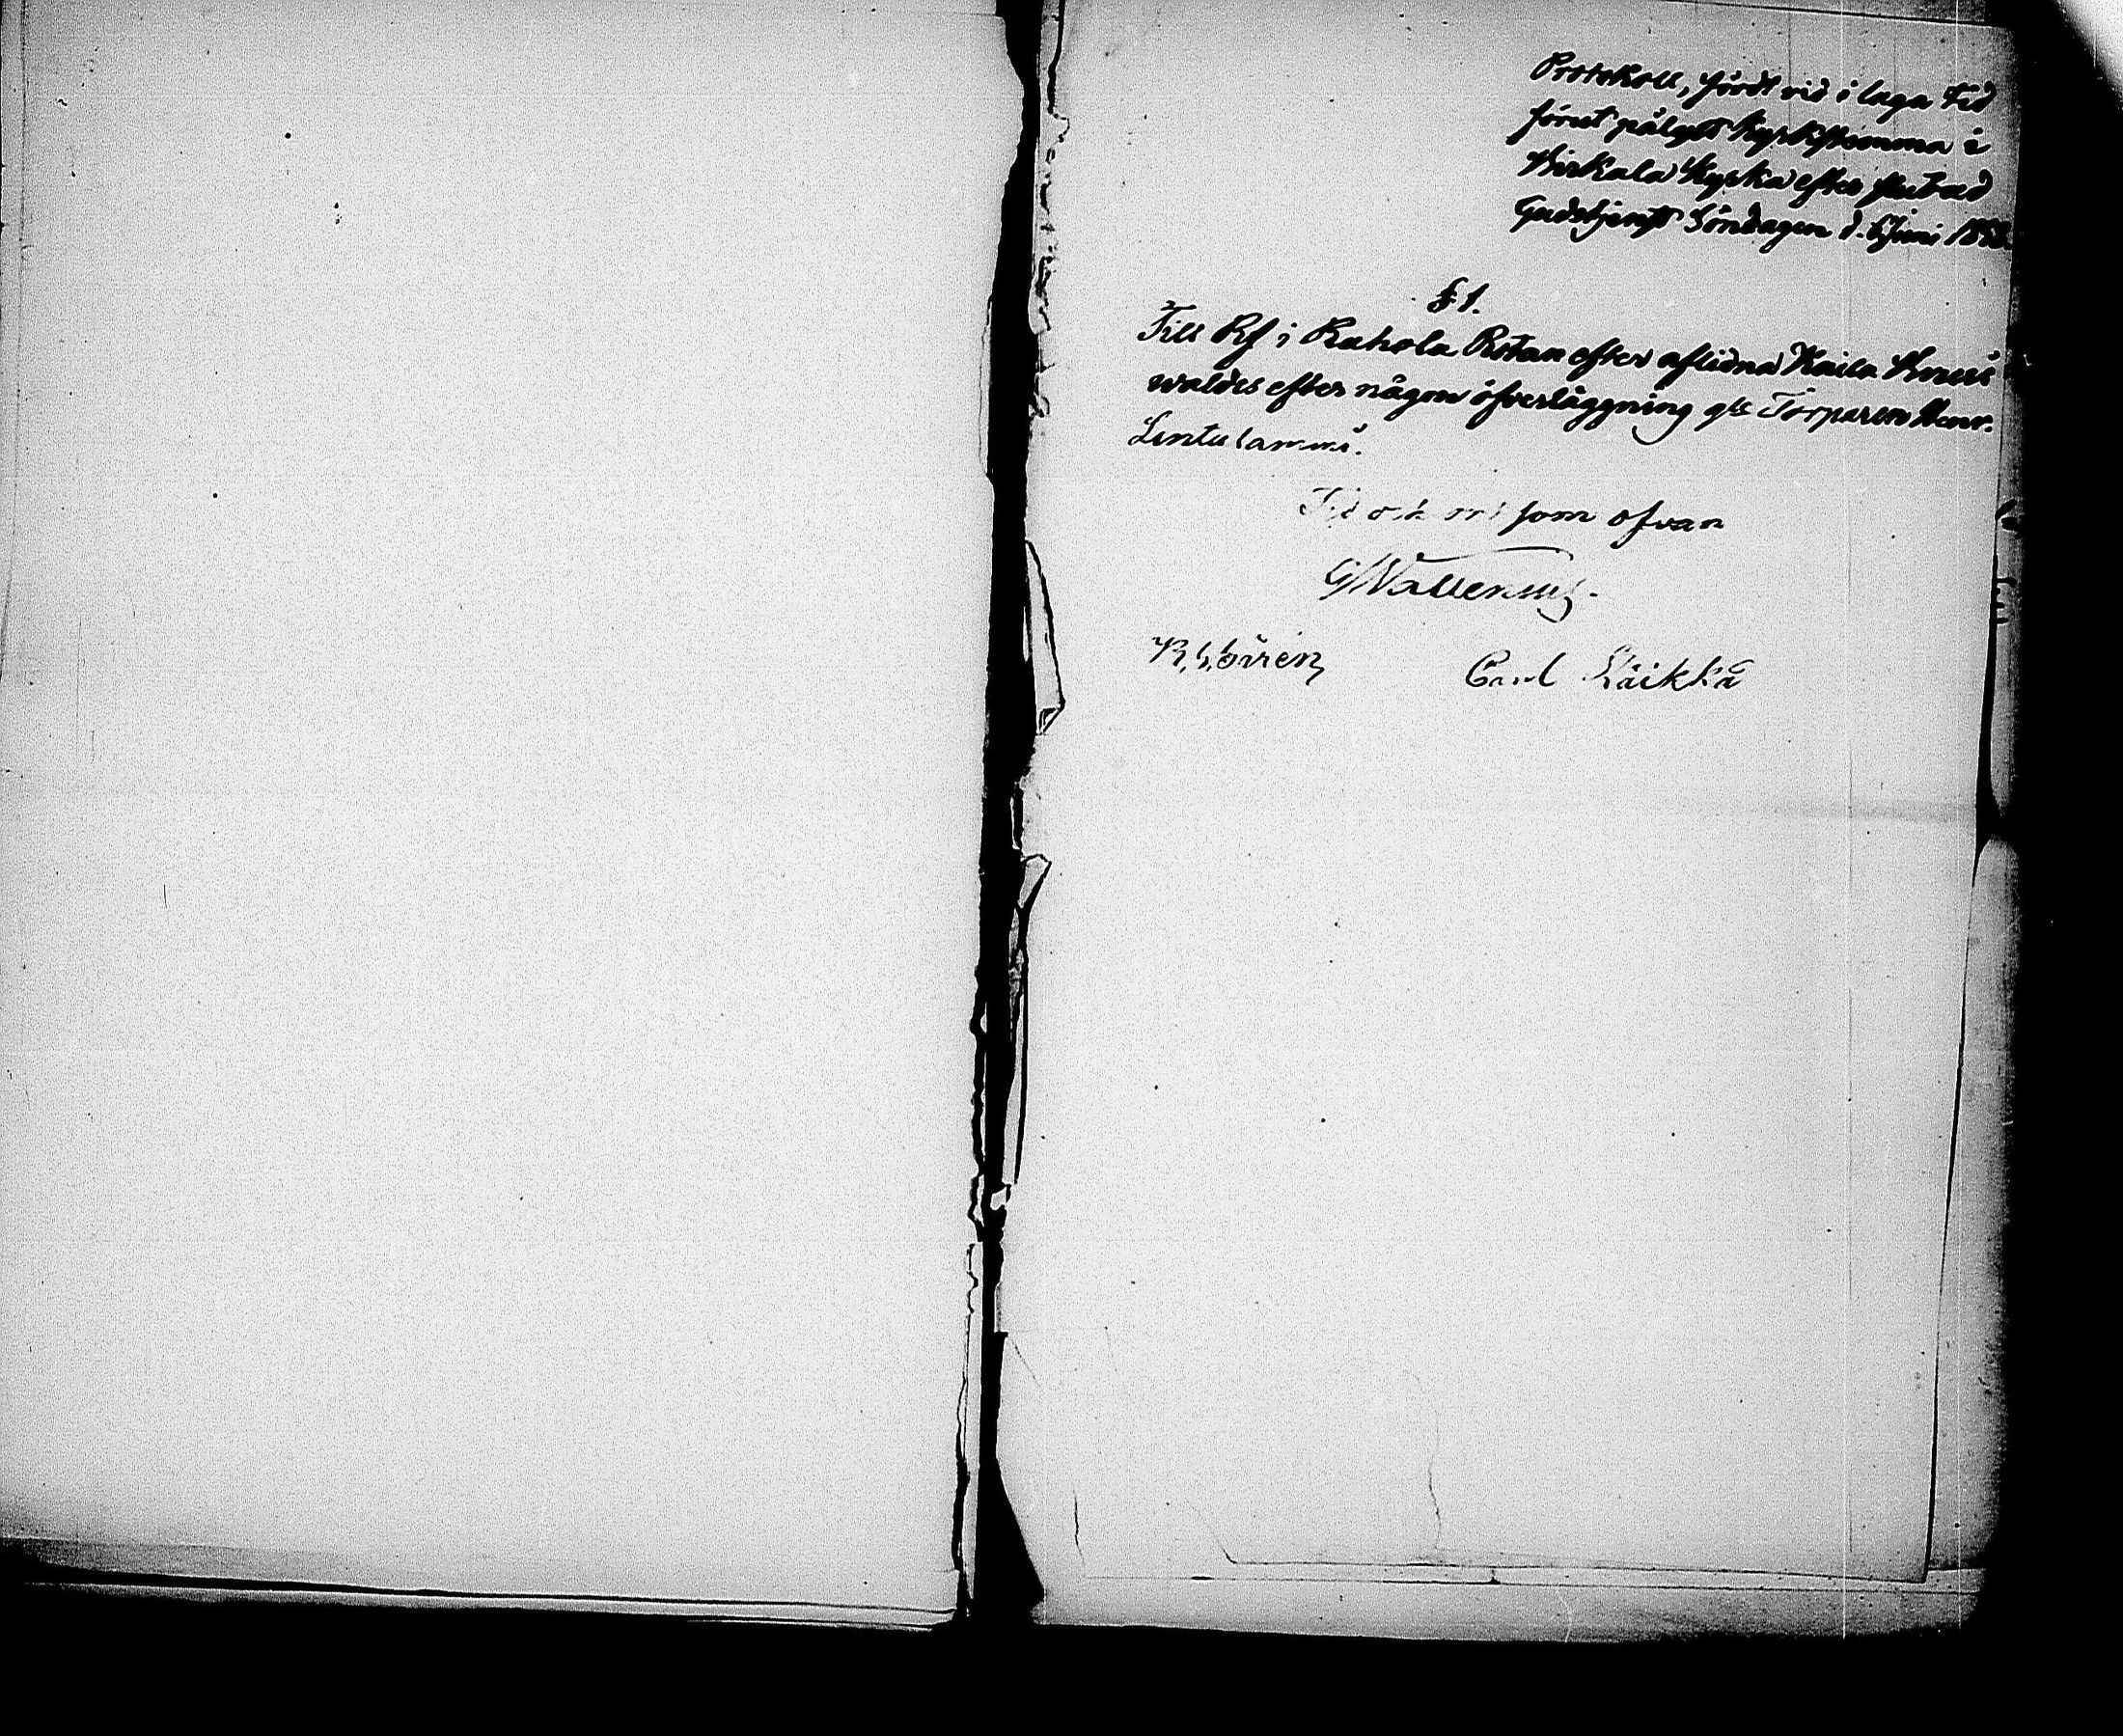 Protokoll, fördt vid i laga tid
förut pålyst Kyrkstämma i
Kyrka efter slutad
Gudstjenst Söndagen d. Juni
§ 1.
Till Rf i Rahola Rotan efter aflidna Kaila
waldes efter någon öfverläggning gls Torparen Henr.
Lintulammi.
Tid och som ofvan
G Wallenius.
Carl Räikkä